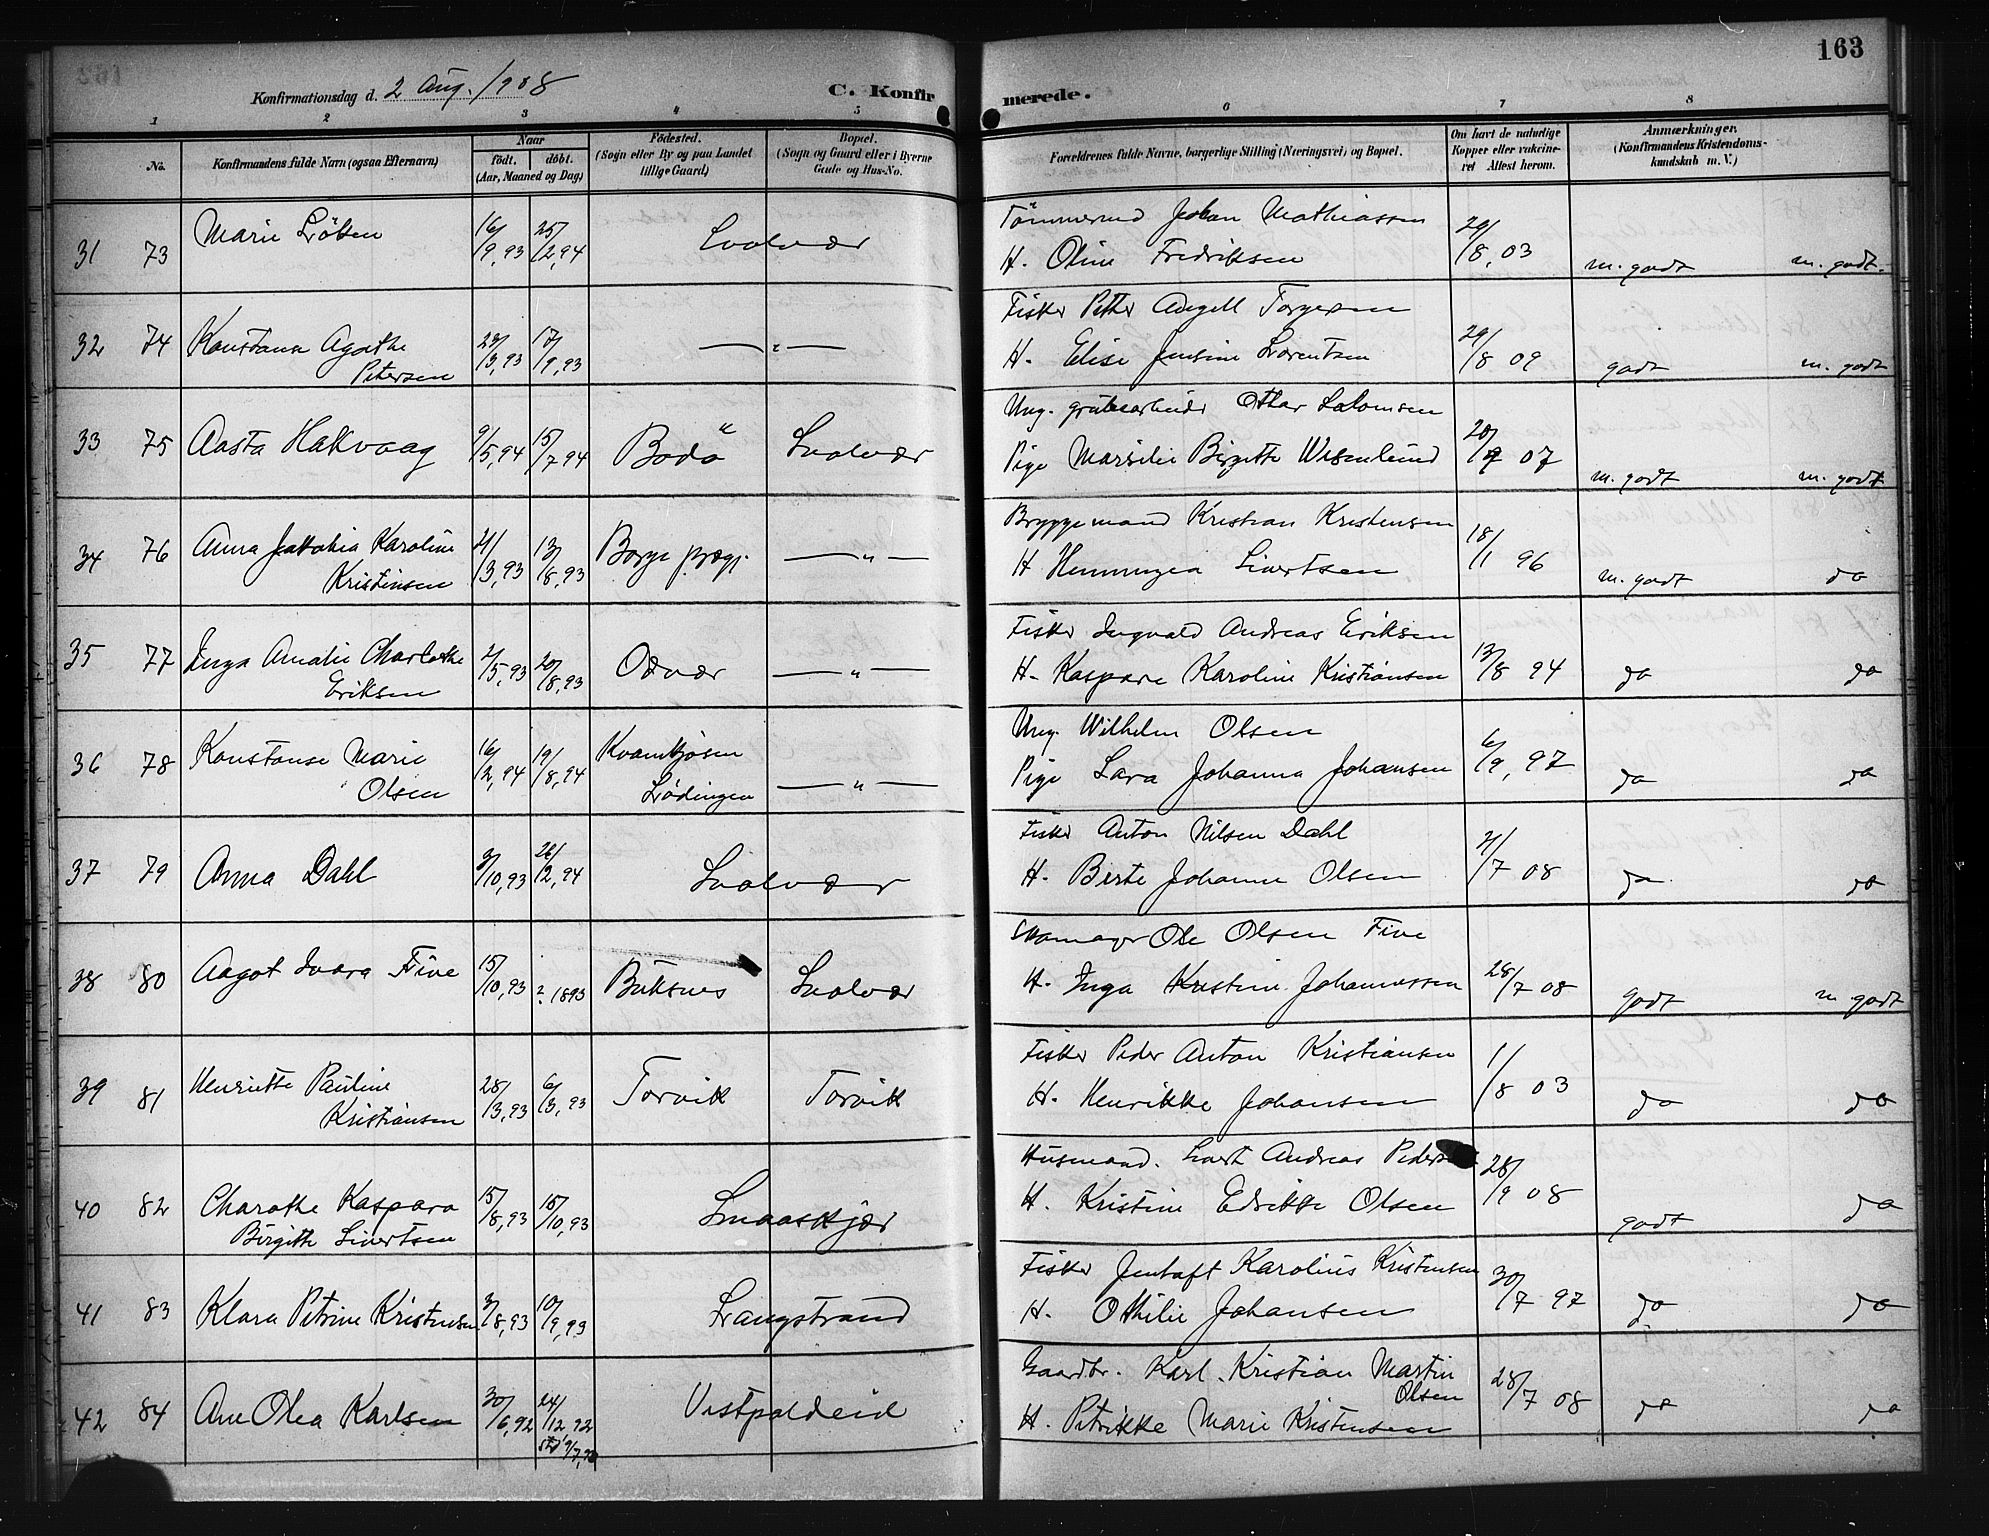 163
Konfirmationsdag d. 2 Aug. 1908
C. Konfirmerede.
1 2 3 4 5 6 7 8
No.
Konfirmandens fulde Navn (ogsaa Efternavn)
Naar
født. døbt.
(Aar, Maaned og Dag)
Fødested.
(Sogn eller By og paa Landet
tillige Gaard)
Bopæl.
(Sogn og Gaard eller i Byerne
Gade og Hus-No.
Forældrenes fulde Navne, borgerlige Stilling (Næringsvei) og Bopæl.
Om havt de naturlige
Kopper eller vakcine-
ret Attest herom.
Anmærkninger.
(Konfirmandens Kristendoms-
kundskab m. V.)
31 73 Marie Löksen 16/9,93 25/2,94 Svolvær
Tömmermd Johan Mathiassen
H. Oline Fredriksen 29/8,03 m. godt m. godt.
32 74 Konstanse Agathe 23/3,93 17/9,93 — " —
Petersen
Fisker Petter Angell Torgersen
H. Elise Jensine Lorentsen 29/8 09 godt m. godt
33 75 Aasta Hakvaag 9/5,94 15/7 94 Bodö Svolvær
Ung. grubearbeider Othar Salomsen
Pige Marsilie Birgitte Wesenlund 20/7 07 m. godt m. godt
34 76 Anna Jakobia Karoline 21/3,93 13/8,93 Borge prægj. — " —
Kristensen
Bryggemand Kristian Kristensen
H Hemmingea Sivertsen 18/1 96 m. godt do
35 77 Inga Amalie Charlotte 2/5,93 20/8,93 Odvær — " —
Eriksen
Fisker Ingvald Andreas Eriksen
H. Kaspara Karoline Kristiansen 13/8 94 do do
36 78 Konstanse Marie 16/2,94 19/8,94 Kvamkjosen
Olsen Lödingen — " —
Ung. Wilhelm Olsen
Pige Lara Johanna Johansen 6/9,97 do do
37 79 Anna Dahl 3/10,93 26/2,94 Svolvær
Fisker Anton Nilsen Dahl
H. Berte Johanne Olsen 21/7 08 do do
38 80 Aagot Ivara Five 15/10,93 ?. 1893 Buksnes Svolvær
Skomager Ole Olsen Five
H. Inga Kristine Johannessen 28/7 08 godt m godt
39 81 Henriette Pauline 28/3,93 6/3,93 Torvik Torvik
Kristiansen
Fisker Peder Anton Kristiansen
H. Henrikke Johansen 1/8 03 do do
40 82 Charothe Kaspara 15/8,93 15/10,93 Smaaskjær
Birgitte Sivertsen
Husmand. Sivert Andreas Pedersen
H. Kristine Edrikke Olsen 28/9 08 godt do
41 83 Klara Petrine Kristensen 3/8,93 10/9,93 Langstrand
Fisker Jentoft Karolius Kristensen
H. Othilie Johansen 30/7 97 do do
42 84 Ane Olea Karlsen 30/6,92 24/12,92 Vestpoldeid
Gaardbr. Karl Kristian Martin
Olsen
H. Petrikke Marie Kristensen 28/7 08 do do